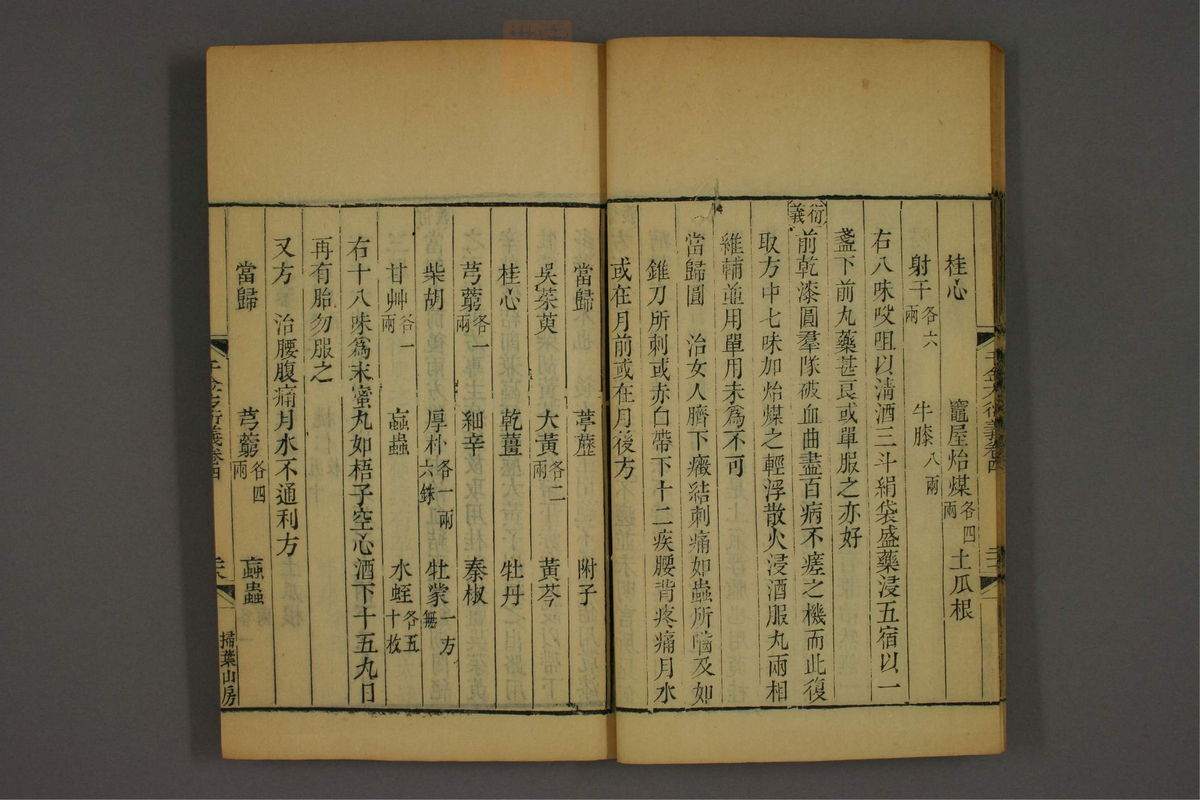 桂心 竈屋炲煤各四兩 土瓜根
射干各六兩 牛膝八兩
右八味㕮咀以淸酒三斗絹袋盛藥浸五宿以一
盞下前丸藥甚良或單服之亦好
衍義
前乾漆圓羣隊破血曲盡百病不瘥之機而此復
取方中七味加炲煤之輕浮散火浸酒服丸兩相
維輔並用單用未爲不可
當歸圓 治女人臍下癥結刺痛如蟲所嚙及如
錐刀所刺或赤白帶下十二疾腰背疼痛月水
或在月前或在月後方
當歸 葶藶 附子
吳茱萸 大黃各二兩 黃芩
桂心 乾薑 牡丹
芎藭各一兩 細辛 秦椒
柴胡 厚朴各一兩六銖 牡蒙一方無
甘艸各一兩 蝱蟲 水蛭各五十枚
右十八味爲末蜜丸如梧子空心酒下十五丸日
再有胎勿服之
又方 治腰腹痛月水不通利方
當歸 芎藭各四兩 蝱蟲
千金方衍義卷四
掃葉山房